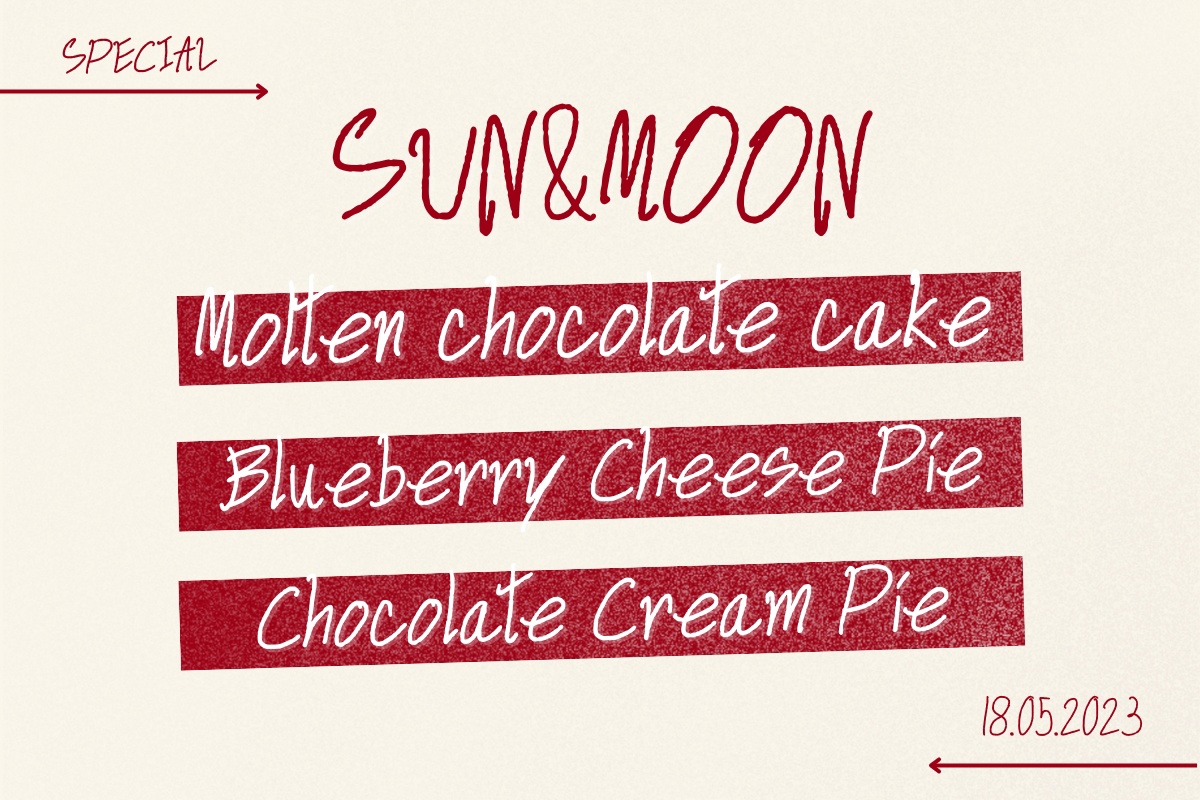 SPECIAL
SUN&MOON
Molten chocolate cake
Blueberry Cheese Pie
Chocolate Cream Pie
18.05.2023